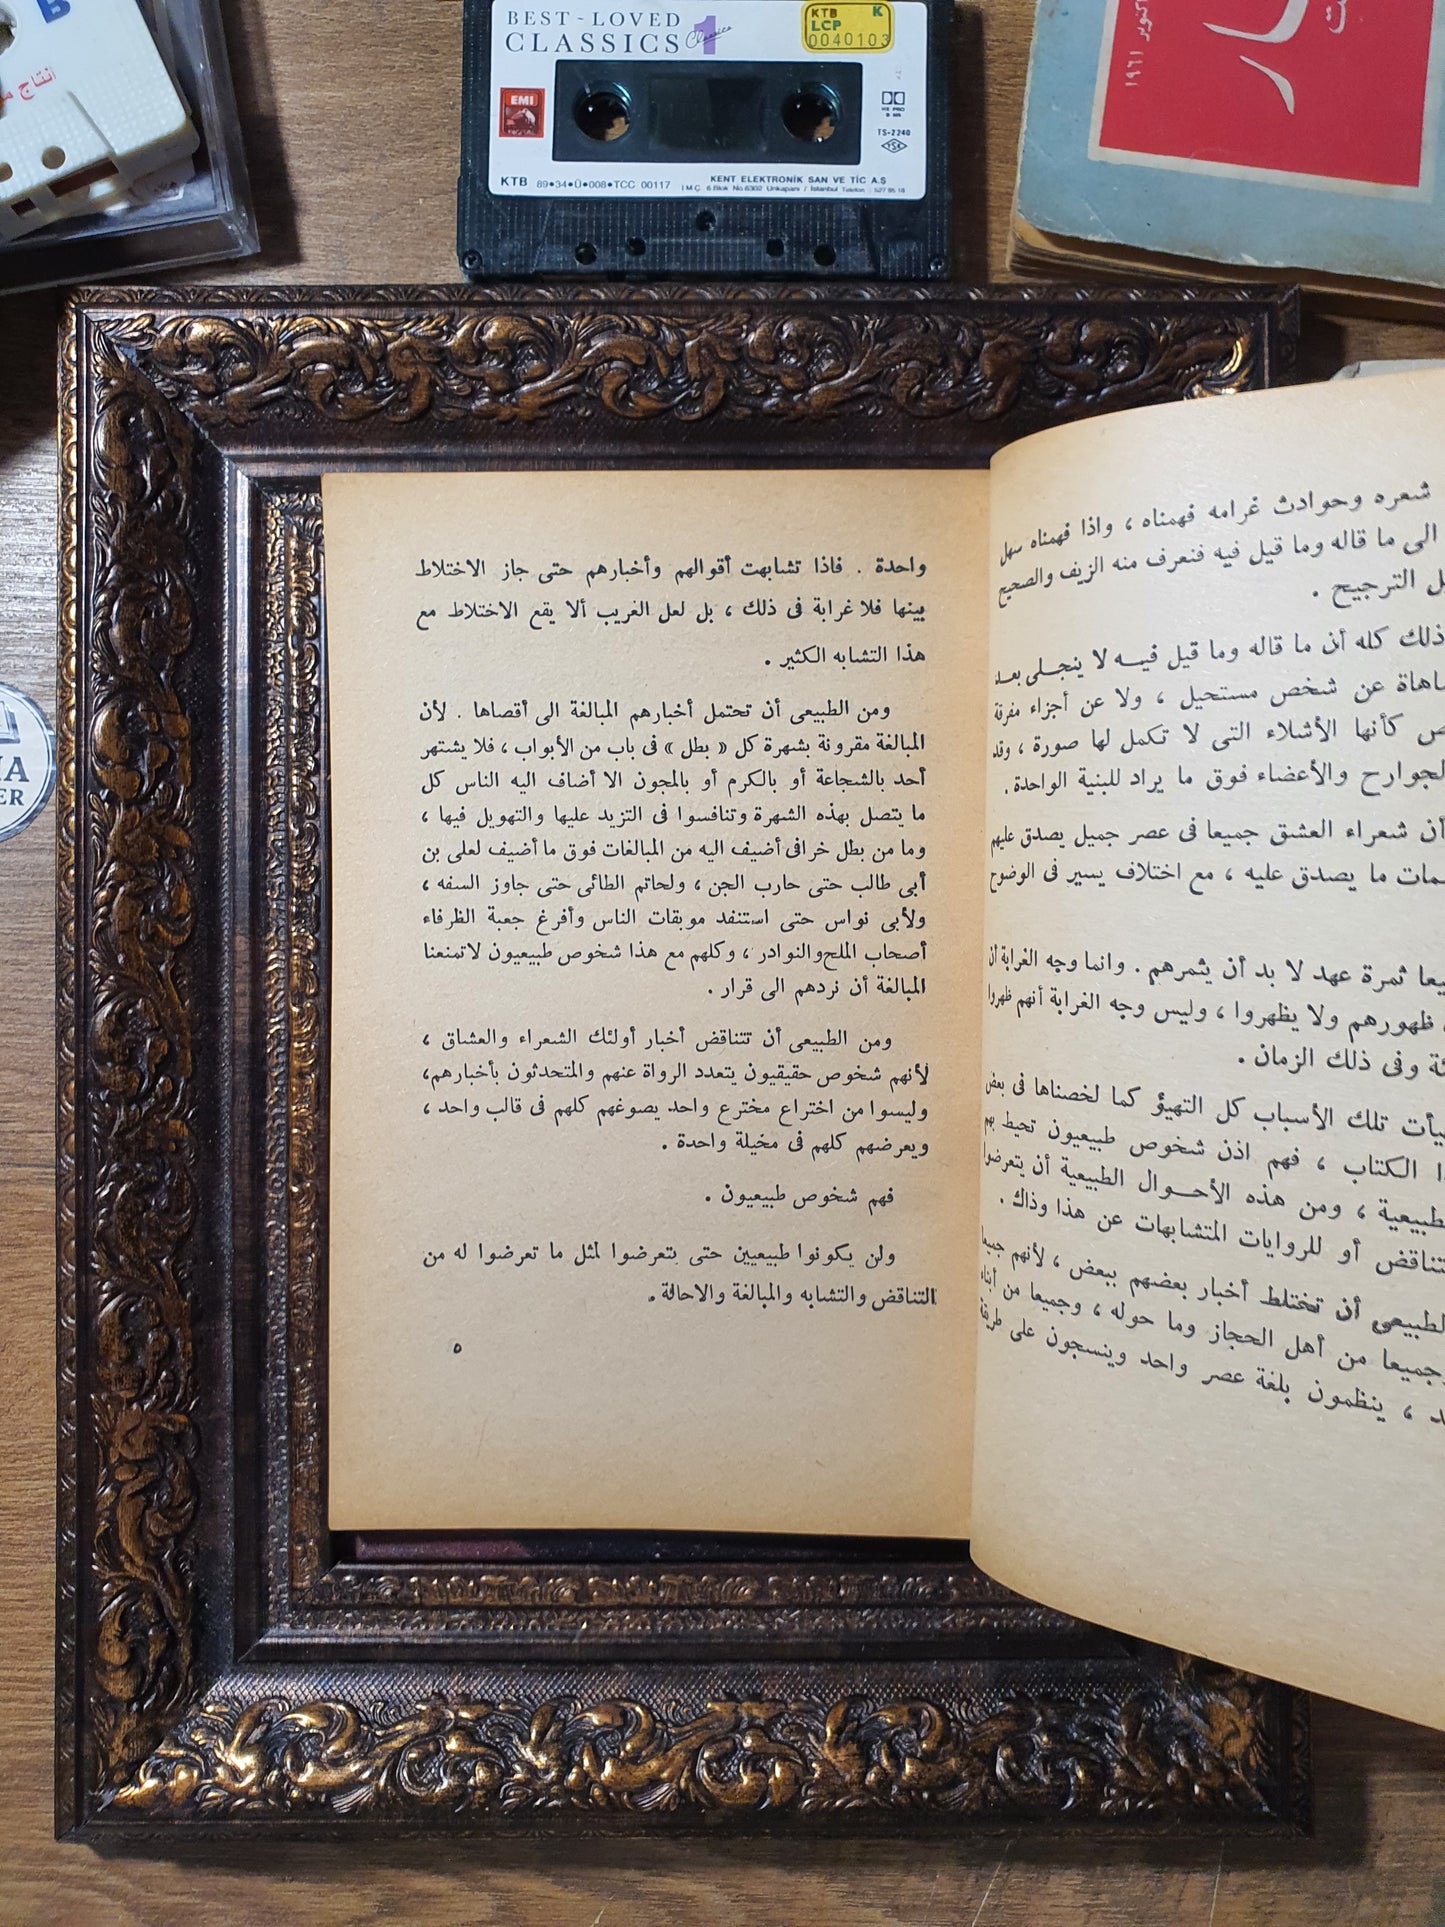 B
انتاج
BEST-LOVED
CLASSICS 1
Classics
KTB K
LCP
0040103
EMI
TS-2240
KTB 89•34•Ü•008•TCC 00117
KENT ELEKTRONİK SAN VE TİC A.Ş
İ.M.Ç. 6.Blok No.6302 Unkapanı / İstanbul Telefon : 527 95 18
١٩٦١
شعره وحوادث غرامه فهمناه ، واذا فهمناه سهل
الى ما قاله وما قيل فيه فنعرف منه الزيف والصحيح
الترجيح .
ذلك كله أن ما قاله وما قيل فيه لا ينجلى بعد
عن شخص مستحيل ، ولا عن أجزاء مفرقة
كأنها الأشلاء التى لا تكمل لها صورة ، وقد
الجوارح والأعضاء فوق ما يراد للبنية الواحدة .
أن شعراء العشق جميعا فى عصر جميل يصدق عليهم
ما يصدق عليه ، مع اختلاف يسير فى الوضوح
ثمرة عهد لا بد أن يثمرهم . وانما وجه الغرابة أن
ظهورهم ولا يظهروا ، وليس وجه الغرابة أنهم ظهروا
وفى ذلك الزمان .
تلك الأسباب كل التهيؤ كما لخصناها فى بعض
الكتاب ، فهم اذن شخوص طبيعيون تحيط بهم
ومن هذه الأحوال الطبيعية أن يتعرضوا
أو للروايات المتشابهات عن هذا وذاك .
أن تختلط أخبار بعضهم ببعض ، لأنهم جميعا
من أهل الحجاز وما حوله ، وجميعا من أبناء
، ينظمون بلغة عصر واحد وينسجون على طريقة
واحدة . فاذا تشابهت أقوالهم وأخبارهم حتى جاز الاختلاط
بينها فلا غرابة فى ذلك ، بل لعل الغريب ألا يقع الاختلاط مع
هذا التشابه الكثير .
ومن الطبيعى أن تحتمل أخبارهم المبالغة الى أقصاها . لأن
المبالغة مقرونة بشهرة كل « بطل » فى باب من الأبواب ، فلا يشتهر
أحد بالشجاعة أو بالكرم أو بالمجون الا أضاف اليه الناس كل
ما يتصل بهذه الشهرة وتنافسوا فى التزيد عليها والتهويل فيها ،
وما من بطل خرافى أضيف اليه من المبالغات فوق ما أضيف لعلى بن
أبى طالب حتى حارب الجن ، ولحاتم الطائى حتى جاوز السفه ،
ولأبى نواس حتى استنفد موبقات الناس وأفرغ جعبة الظرفاء
أصحاب الملح والنوادر ، وكلهم مع هذا شخوص طبيعيون لاتمنعنا
المبالغة أن نردهم الى قرار .
ومن الطبيعى أن تتناقض أخبار أولئك الشعراء والعشاق ،
لأنهم شخوص حقيقيون يتعدد الرواة عنهم والمتحدثون بأخبارهم،
وليسوا من اختراع مخترع واحد يصوغهم كلهم فى قالب واحد ،
ويعرضهم كلهم فى مخيلة واحدة .
فهم شخوص طبيعيون .
ولن يكونوا طبيعيين حتى يتعرضوا لمثل ما تعرضوا له من
التناقض والتشابه والمبالغة والاحالة .
٥